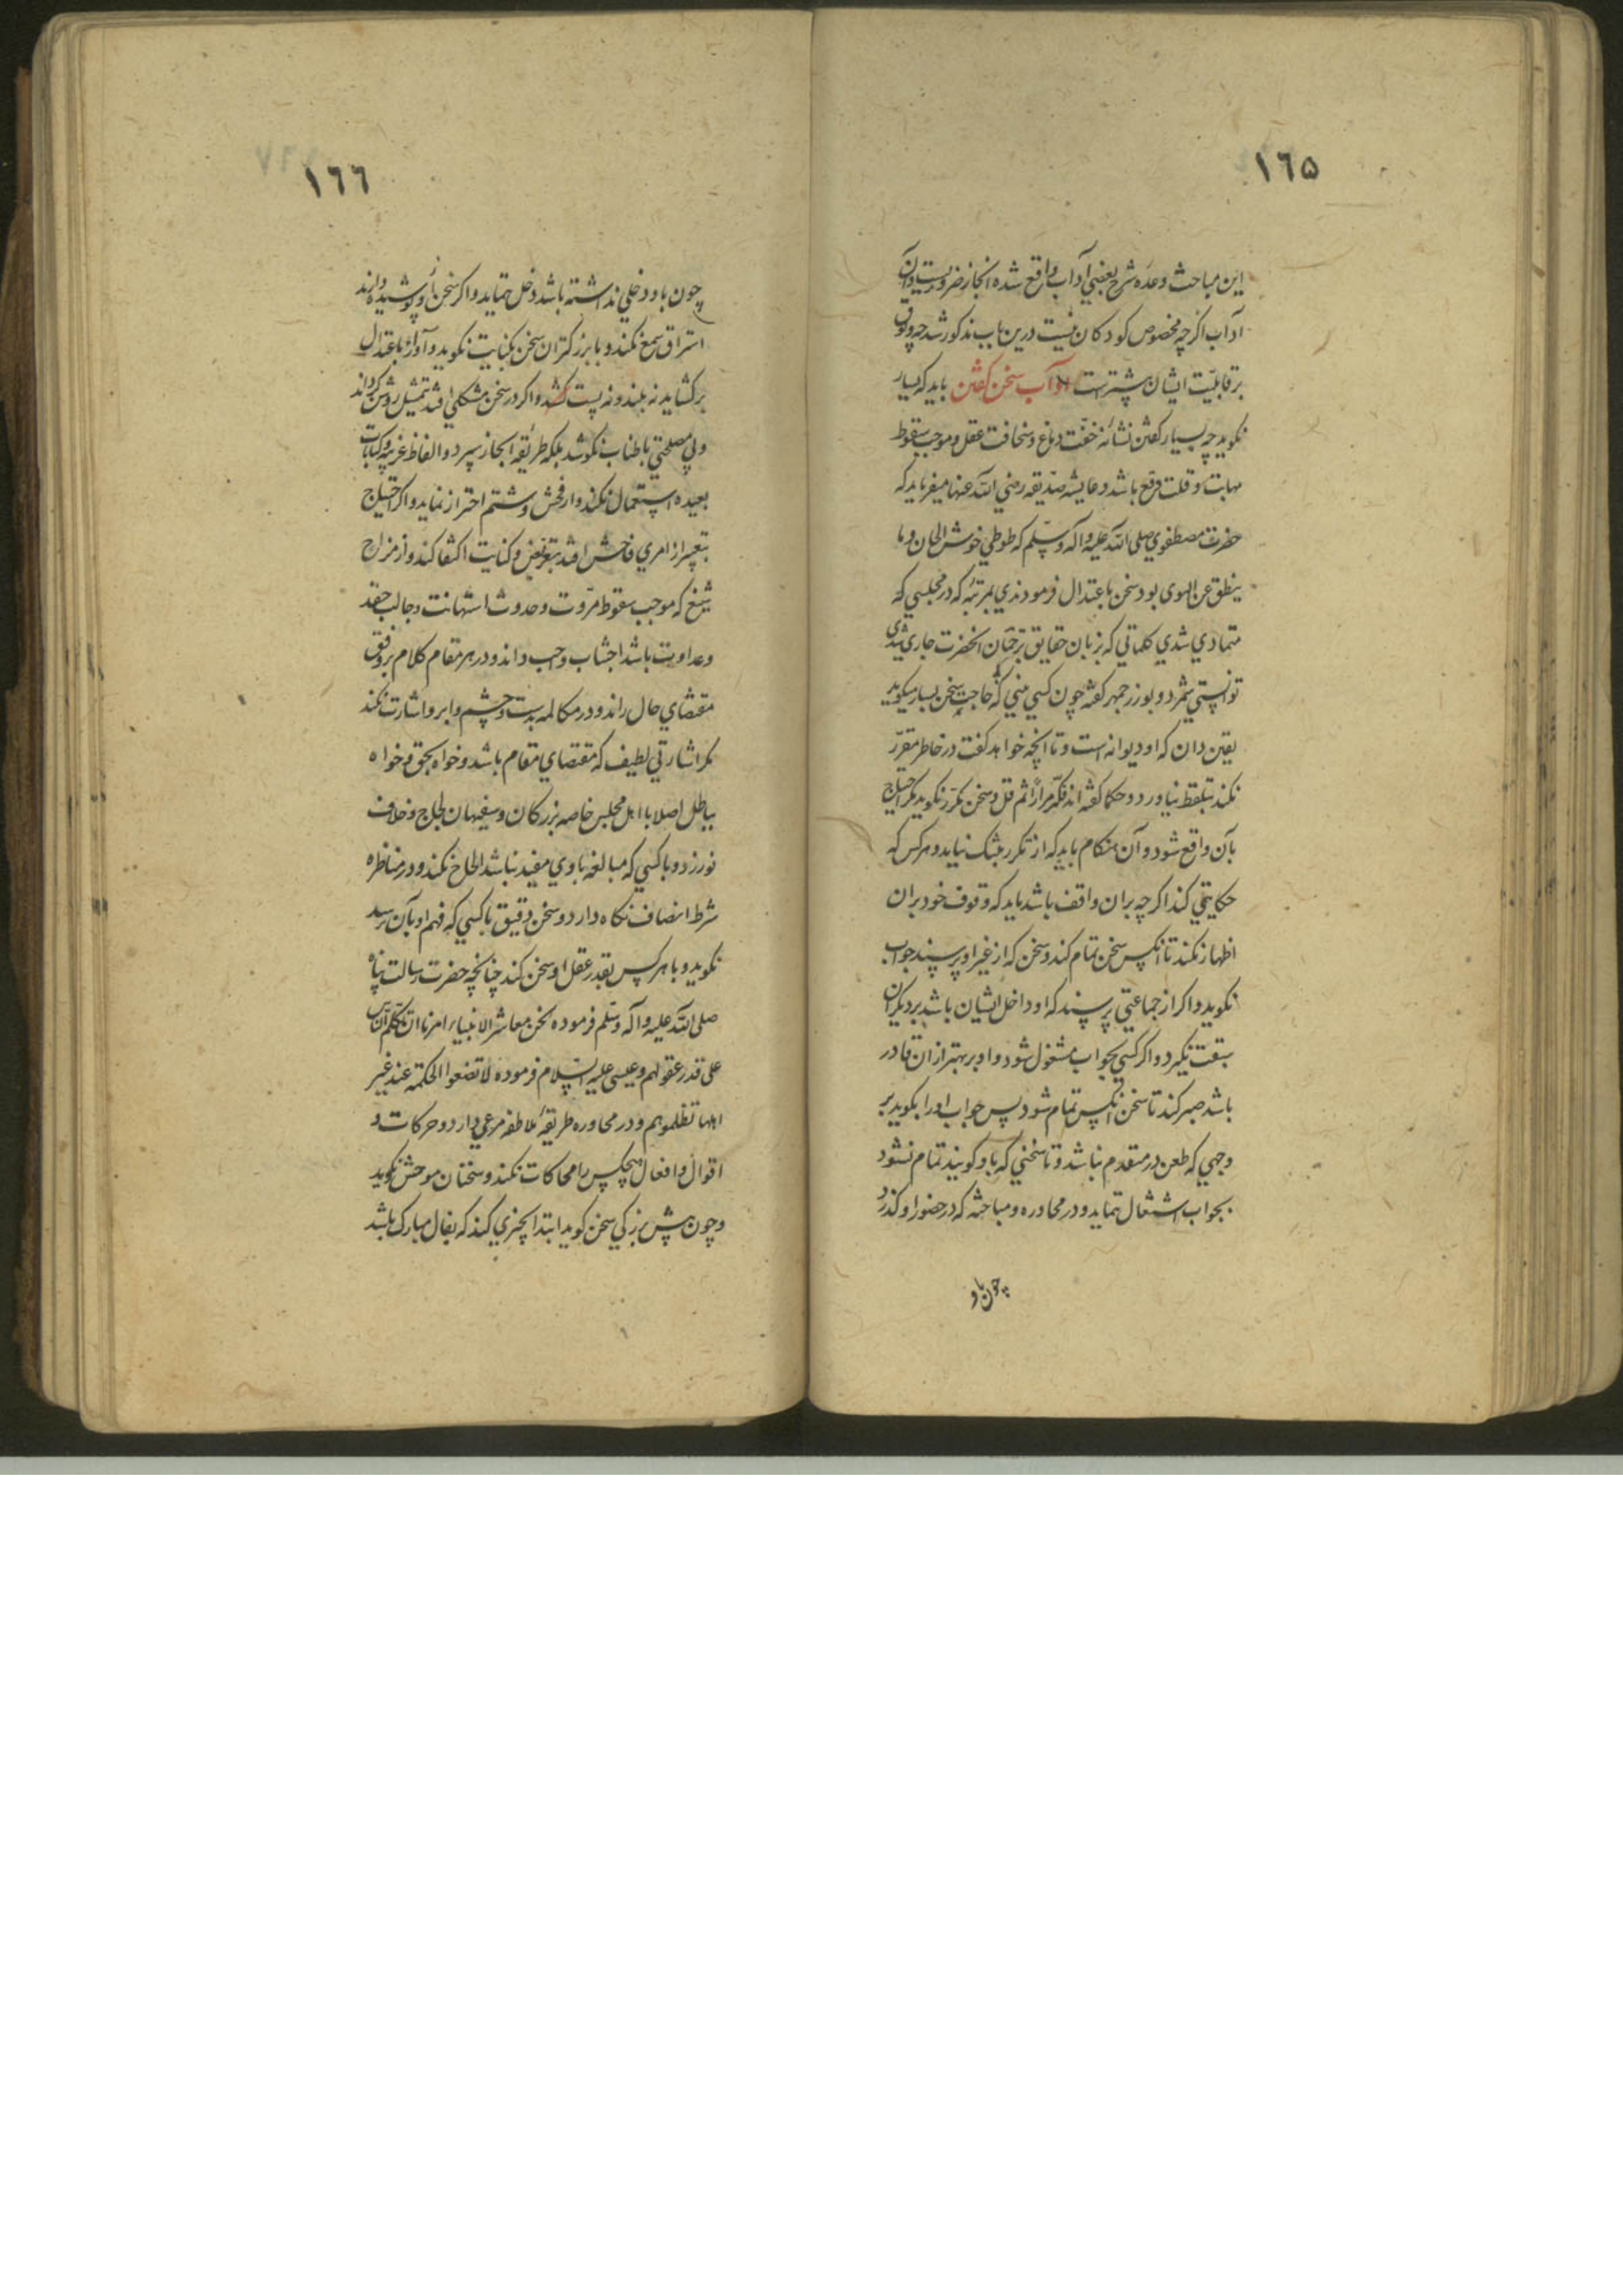 ١٦٥
این مباحث وعده شرح بعضی آداب واقع شده انجاز ضروریست و آن
آداب اکرچه مخصوص کودکان نیست درین باب مذکور شد چه وثوق
بر قابلیّت ایشان بیشترست آداب سخن کفتن باید که بسیار
نکوید چه بسیار کفتن نشانهٔ خفّت دماغ و سخافت عقل و موجب سقوط
مهابت و قلت وقع باشد و عایشه صدّیقه رضی الله عنها میفرماید که
حضرت مصطفوی صلی الله علیه وآله وسلّم که طوطی خوش الحان وما
ینطق عن الهوی بود سخن باعتدال فرمودندی بمرتبهٔ که در مجلسی که
متمادی شدی کلماتی که بزبان حقایق ترجمان آنحضرت جاری شدی
توانستی شمرد و بوزرجمهر کفته چون کسی بینی که بی حاجت سخن بسیار میکوید
یقین دان که او دیوانه است و تا آنچه خواهد کفت در خاطر مقرّر
نکند بتلفظ نیاورد و حکما کفته اند فکّر مراراً ثم قل و سخن مکرّر نکوید مکر احتیاج
بآن واقع شود و آن هنکام باید که از تکرر بتنک نیاید و هرکس که
حکایتی کند اکرچه بران واقف باشد باید که وقوف خود بران
اظهار نکند تا انکس سخن تمام کند و سخن که از غیر او پرسند جواب
نکوید و اکر از جماعتی پرسند که او داخل ایشان باشد بر دیکران
سبقت نکیرد و اکر کسی بجواب مشغول شود و او بر بهتر از ان قادر
باشد صبر کند تا سخن انکس تمام شود پس جواب او را بکوید بر
وجهی که طعن در متقدم نباشد و تا سخنی که باو کویند تمام نشود
بجواب اشتغال ننماید و در محاوره و مباحثه که در حضور او کذرد
چون باو
١٦٦
چون باو دخلی نداشته باشد دخل ننماید و اکر سخن از و پوشیده دارند
استراق سمع نکند و با بزرکتران سخن بکنایت نکوید و آواز باعتدال
برکشاید نه بلند و نه پست کشد و اکر در سخن مشکلی افتد بتمثیل روشن کرداند
و بی مصلحتی باطناب نکوشد بلکه طریقهٔ ایجاز سپرد و الفاظ غریبه و کنایات
بعیده استعمال نکند و از فحش و شتم احتراز نماید و اکر احتیاج
بتعبیر از امری فاحش افتد بتعریض و کنایت اکتفا کند و از مزاح
شنیع که موجب سقوط مروّت و حدوث استهانت و جالب حقد
و عداوت باشد اجتناب واجب داند و در هر مقام کلام بر وفق
مقتضای حال راند و در مکالمه بدست و چشم و ابرو اشارت نکند
مکر اشارتی لطیف که مقتضای مقام باشد و خواه بحق و خواه
بباطل اصلا با اهل مجلس خاصه بزرکان و سفیهان لجاج و خلاف
نورزد و با کسی که مبالغه با وی مفید نباشد الحاح نکند و در مناظره
شرط انصاف نکاه دارد و سخن دقیق با کسی که فهم او بآن نرسد
نکوید و با هر کس بقدر عقل او سخن کند چنانچه حضرت رسالت پناه
صلی الله علیه وآله وسّلم فرموده نحن معاشر الانبیاء امرنا ان نتکلّم الناس
علی قدر عقولهم و عیسی علیه السّلام فرموده لا تضعوا الحکمة عند غیر
اهلها تظلموهم و در محاوره طریقهٔ ملاطفه مرعی دارد و حرکات و
اقوال و افعال هیچکس را محاکات نکند و سخنان موحش نکوید
و چون پیش بزرکی سخن کوید ابتدا بچیزی کند که بفال مبارک باشد